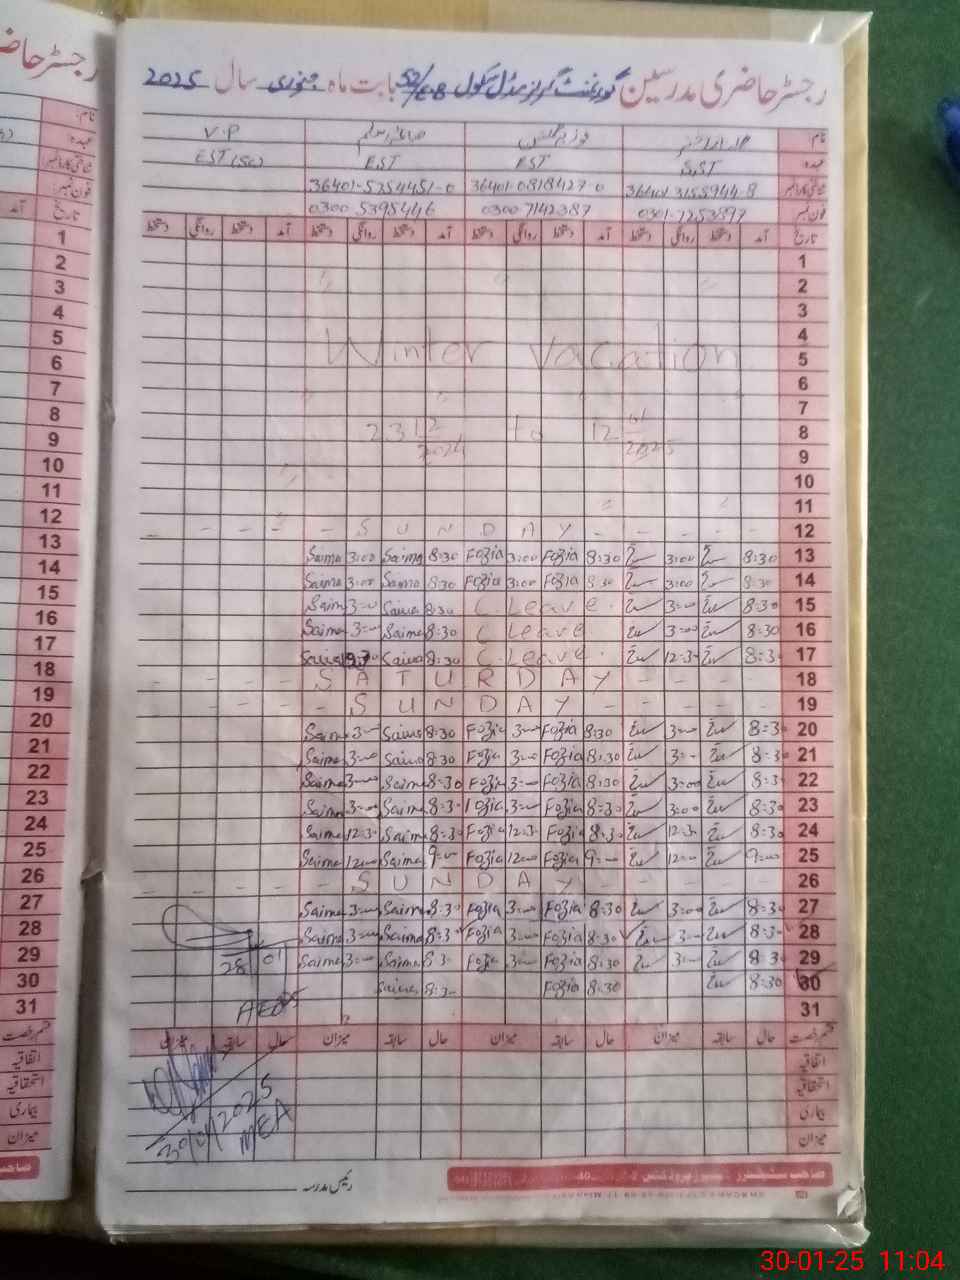 رجسٹر حاضری مدرسین گورنمنٹ گرلز مڈل سکول 52/EB بابت ماہ جنوری سال 2025
نام V.P
عہدہ SST EST EST EST (Sc)
36401-3155944-8 36401-0818427-0 36401-5254451-0
فون نمبر 0301-7253897 0300-7142387 0300 5395446
تاریخ آمد دستخط روانگی دستخط آمد دستخط روانگی دستخط آمد دستخط روانگی دستخط آمد دستخط روانگی دستخط
1
2
3
4
Winter vacation 5
6
7
23 12/2024 to 12 01/2025 8
9
10
11
- - - - SUNDAY - - - - 12
Saima 3:00 Saima 8:30 Fozia 3:00 Fozia 8:30 3:00 8:30 13
Saima 3:00 Saima 8:30 Fozia 3:00 Fozia 8:30 3:00 8:30 14
Saima 3:00 Saima 8:30 C. Leave. 3:00 8:30 15
Saima 3:00 Saima 8:30 C Leave 3:00 8:30 16
Saima Saima 8:30 C. Leave. 12:30 8:30 17
- - - - SATURDAY - - - - 18
- - - - SUNDAY - - - - 19
Saima 3:00 Saima 8:30 Fozia 3:00 Fozia 8:30 3:00 8:30 20
Saima 3:00 Saima 8:30 Fozia 3:00 Fozia 8:30 3:00 8:30 21
Saima 3:00 Saima 8:30 Fozia 3:00 Fozia 8:30 3:00 8:30 22
Saima 3:00 Saima 8:30 Fozia 3:00 Fozia 8:30 3:00 8:30 23
Saima 12:30 Saima 8:30 Fozia 12:30 Fozia 8:30 12:30 8:30 24
Saima 12:00 Saima 9:00 Fozia 12:00 Fozia 9:00 12:00 9:00 25
- - - - SUNDAY - - - - 26
Saima 3:00 Saima 8:30 Fozia 3:00 Fozia 8:30 3:00 8:30 27
Saima 3:00 Saima 8:30 Fozia 3:00 Fozia 8:30 3:00 8:30 28
28/01 Saima 3:00 Saima 8:30 Fozia 3:00 Fozia 8:30 3:00 8:30 29
Saima 8:30 Fozia 8:30 8:30 30
31
قسم رخصت حال سابقہ میزان حال سابقہ میزان حال سابقہ میزان حال سابقہ میزان
اتفاقیہ
استحقاقیہ
بیماری
میزان
30/01/2025
MEA
رئیس مدرسہ
رجسٹر حاضری
نام
عہدہ
فون نمبر
تاریخ
1
2
3
4
5
6
7
8
9
10
11
12
13
14
15
16
17
18
19
20
21
22
23
24
25
26
27
28
29
30
31
قسم رخصت
اتفاقیہ
استحقاقیہ
بیماری
میزان
30-01-25 11:04